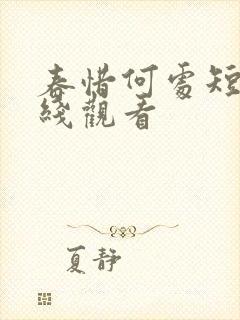 春惜何處短
綫觀看
夏靜